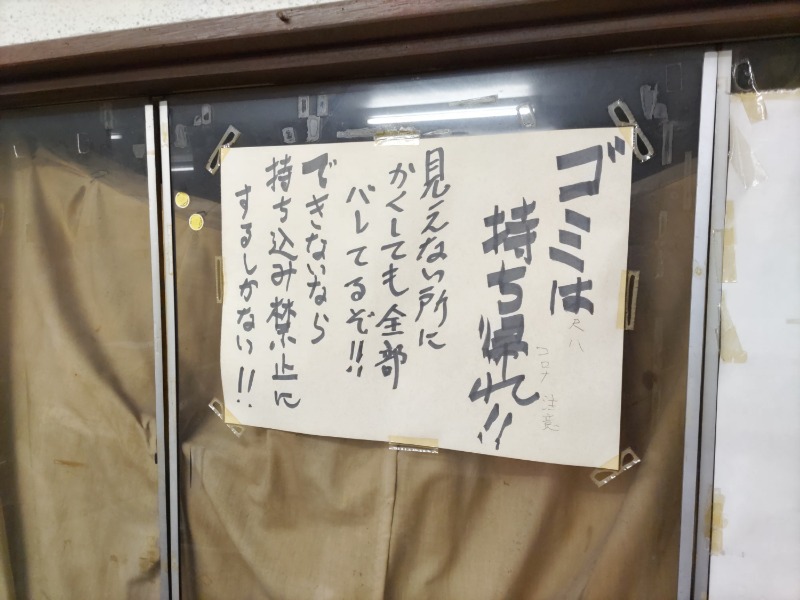 ゴミは
持ち帰れ!!
見えない所に
かくしても全部
バレてるぞ!!
できないなら
持ち込み禁止に
するしかない!!
コロナ 注意